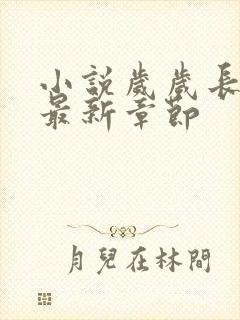 小說歲歲長
最新章節
月兒在林間